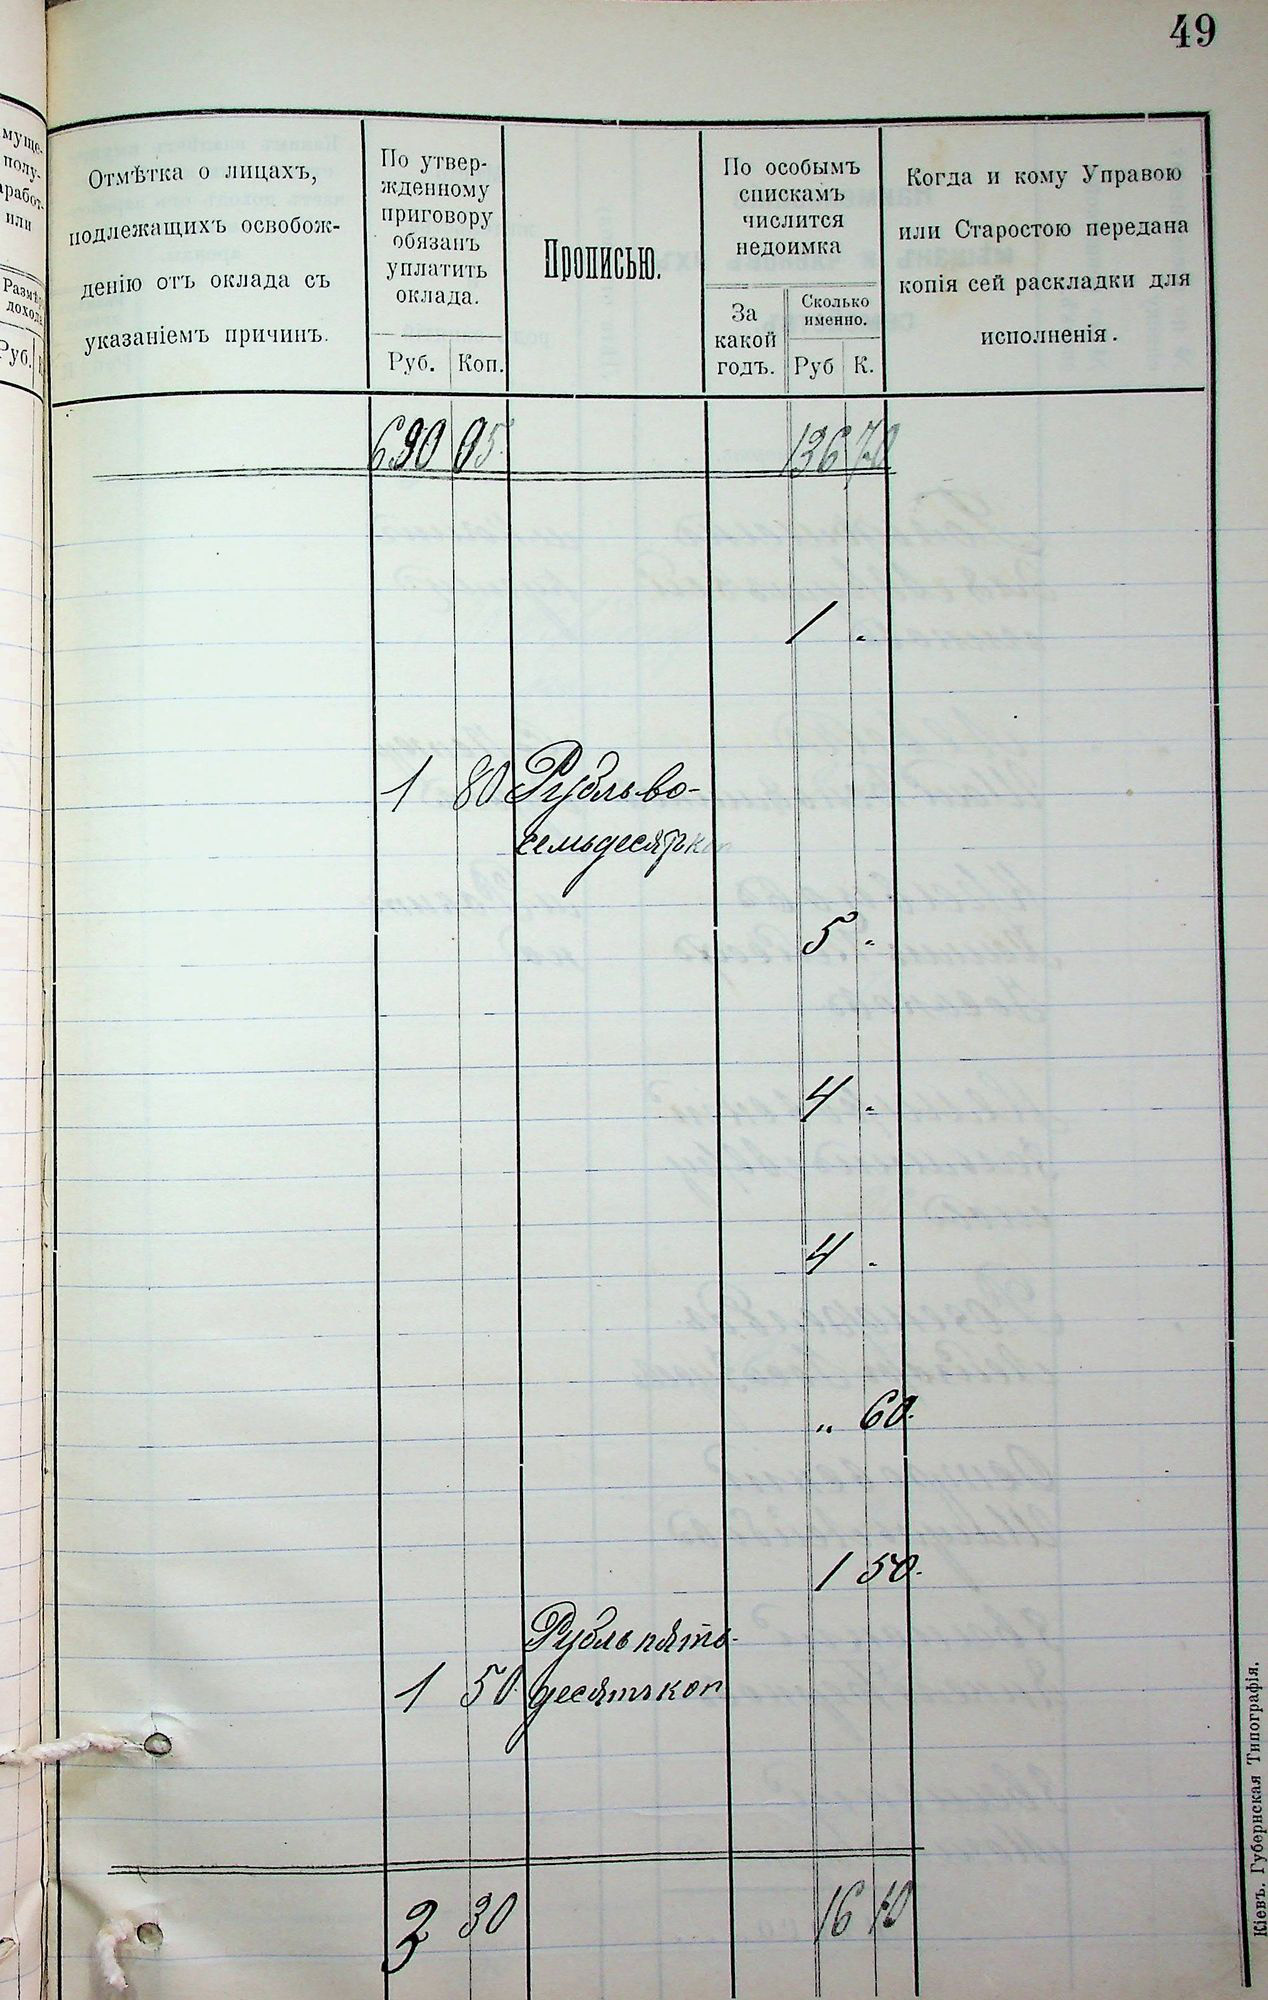 49
муще-
полу-
аработ-
или
Размѣ
дохода
Руб.
Отмѣтка о лицахъ,
подлежащихъ освобож-
денію отъ оклада съ
указаніемъ причинъ.
По утвер-
жденному
приговору
обязанъ
уплатить
оклада.
Руб. Коп.
Прописью.
По особымъ
спискамъ
числится
недоимка
За
какой
годъ.
Сколько
именно.
Руб К.
Когда и кому Управою
или Старостою передана
копія сей раскладки для
исполненія.
690 05. 136 70
1 "
1 80 Рубль во-
семьдесятъ коп
5 "
4 "
4 "
" 60.
1 50.
Рубль пять-
1 50 десятъ коп
3 30 16 10
Кіевъ. Губернская Типографія.